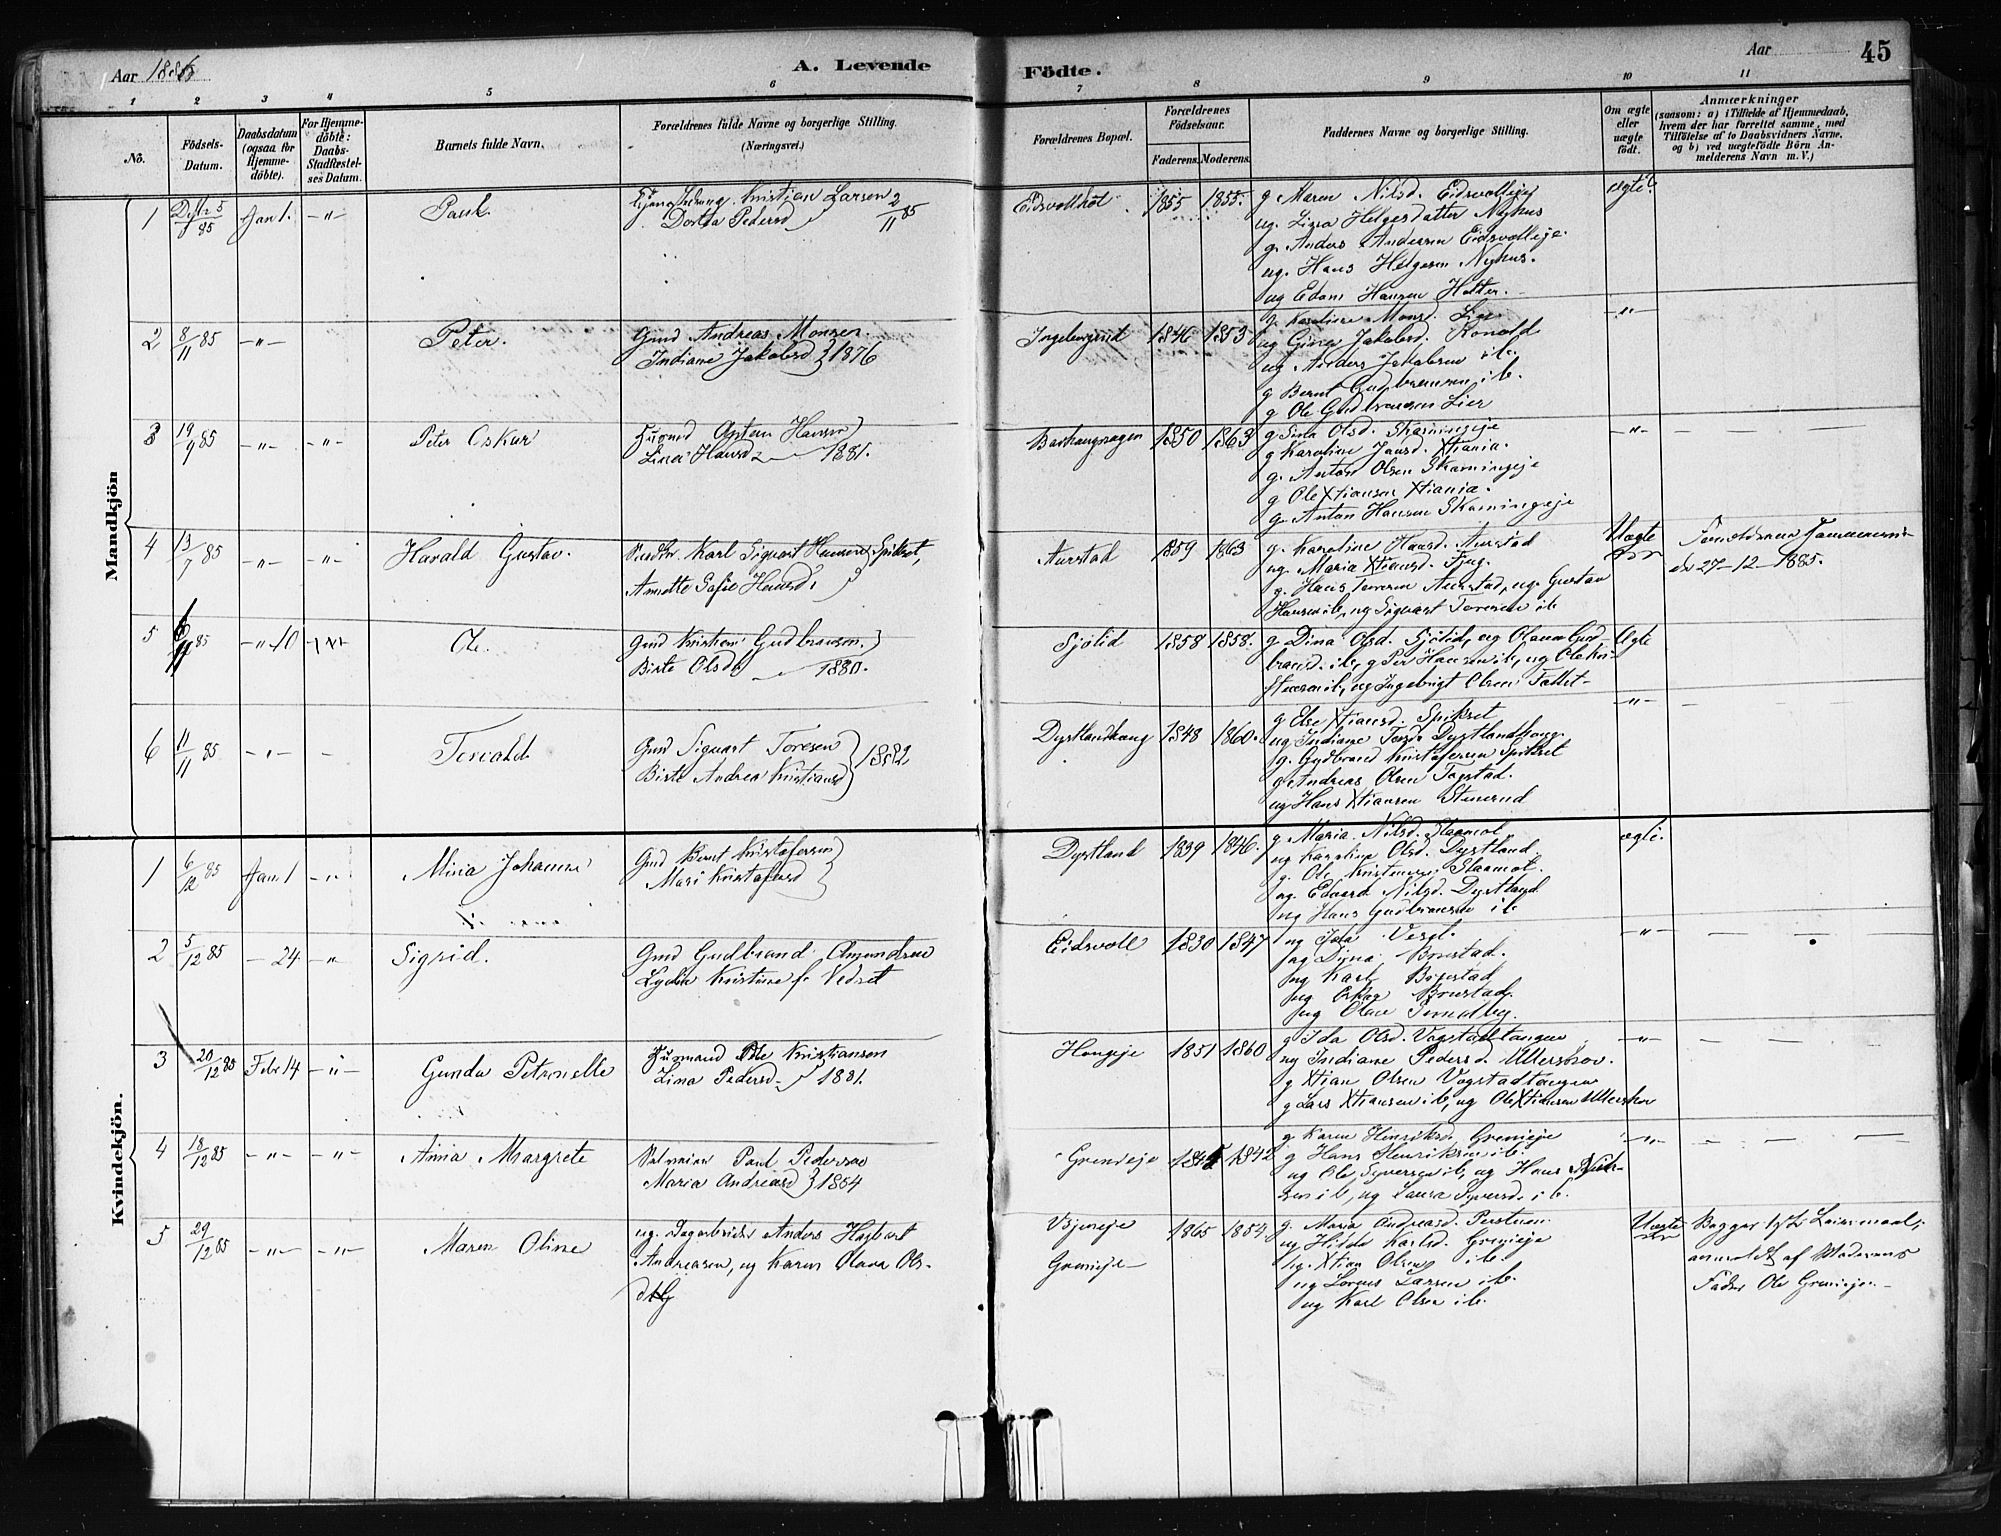 Aar 1886
A. Levende
Födte.
Aar
45
1 2 3 4 5 6 7 8 9 10 11
No.
Födsels-
Datum.
Daabsdatum
(ogsaa for
Hjemme-
döbte).
For Hjemme-
döbte:
Daabs-
Stadfæstel-
ses Datum.
Barnets fulde Navn.
Forældrenes fulde Navne og borgerlige Stilling.
(Næringsvei.)
Forældrenes Bopæl.
Forældrenes
Födselsaar.
Faderens. Moderens.
Faddernes Navne og borgerlige Stilling.
Om ægte
eller
uægte
födt.
Anmærkninger
(saasom: a) i Tilfælde af Hjemmedaab,
hvem der har forrettet samme, med
Tilföielse af to Daabsvidners Navne,
og b) ved uægtefödte Börn An-
melderens Navn m. V.)
Mandkjön
1
85
Jan 1.
-"-
Paul
Kristian Larsen 2/11 85
Dortea Pedersd
Eidsvolhot
1855 1855.
g Maren Nilsd. Eidsvolleje
ug. Lina Helgesdatter Nyhus
g. Anders Andersen Eidsvolleje.
ug. Hans Helgesen Nyhus.
ug Edom Hansen Holter.
ægte
2
8/11 85
-"-
Peter.
Gmd Andreas Monsen.
Indiane Jakobsd } 1876
Ingeborgrud
1846 1853
g. Karoline Monsd. Lier
ug Gina Jakobsd. Ronold
ug Anders Jakobsen ib.
g Bernt Gudbransen ib.
g Ole Gudbransen Lier
-"-
3
19/9 85
-"- -"-
Peter Oskar
Husmd Hansen
Lina Hansd 1881.
1850 1863
g Lina Olsd. Skamingeje
g Karoline Jansd. Xtiania.
g. Anton Olsen Skamingeje
g Ole Xtiansen Xtiania.
g. Anton Hansen Skamingeje
-"-
4
13/7 85
-"- -"-
Harald Gustav.
Karl Sigvart Hansen Spikset,
Annette Sofie Hansd.
Aurstad
1859 1863
g. Karoline Hansd. Aurstad
ug. Maria Xtiansd. Fjug.
g. Hans Toresen Aurstad, ug. Gustav
Hansen ib, ug Sigvart Toresen ib
Uægte
27-12-1885.
5
6/11 85
-"- 10
Ole.
Gmd Kristian Gudbransen.
Birte Olsd 1880.
Sjølid
1858 1858.
g Dina Olsd. Sjølid, ug Olava Gud-
bransd. ib, g Per Hansen ib, ug Ole Kri-
stiansen ib, ug Ingebrigt Olsen
Ægte
6
11/11 85
-"- -
Torvald
Gmd Sigvart Toresen
Birte Andrea Kristiansd } 1882
Dystlandhaug
1848 1860.
g Else Xtiansd. Spikset
ug Indiane Toresd. Dystlandhaug
g. Gudbrand Kristofersen Spikset
g. Andreas Olsen Togstad.
ug Hans Xtiansen Stenerud
-"-
Kvindekjön.
1
6/12 85
Jan 1
-"-
Mina Johanne
Gmd Bernt Kristofersen
Mari Kristofersd
Dystland
1839 1846.
g. Maria Nilsd.
ug Karoline Olsd. Dystland.
g. Ole Kristiansen
ug. Edvard Nilsd. Dystland
ug Hans Gudbransen ib
ægte.
2
5/12 85
- 24
-"-
Sigrid.
Gmd Gudbrand Amundsen
Lydia Kristine f. Vedset
Eidsvoll
1830 1847
ug Ida
ug Dina Brustad.
ug Karl Brustad
ug Oskar Brustad.
ug Olava
-"-
3
20/12 85
Febr 14
-"-
Gunda Petronelle
Husmand Ole Kristiansen
Lina Pedersd 1881.
Haugeje
1851 1860
g Ida Olsd. Vogstadtangen
ug Indiane Pedersd. Ullershov.
g Xtian Olsen Vogstadtangen
g Lars Xtiansen ib, ug Ole Xtiansen Ullershov
-"-
4
18/12 85
-"- -"-
Anna Margrete
Paul Pedersen
Maria Andreasd } 1864
Grendeje
1845 1842
g. Karen Henriksd. Grenieje
g Hans Henriksen ib.
ug Ole Syversen ib, ug Hans
sen ib, ug Laura Syversd. ib.
-"-
5
29/12 85
-"- -"-
Maren Oline
ug. Dagarbeider Anders Hagbart
Andreasen, ug Karen Olava Ols-
dtr
Grenieje
1865 1854.
g. Maria Andreasd.
ug Hilda Karlsd. Grenieje
ug. Xtian Olsen ib.
ug Lorens Larsen ib.
ug Karl Olsen ib.
Uægte
Begges 1ste Leiermaal;
anmeldt af Moderens
Fader Ole Grenieje.